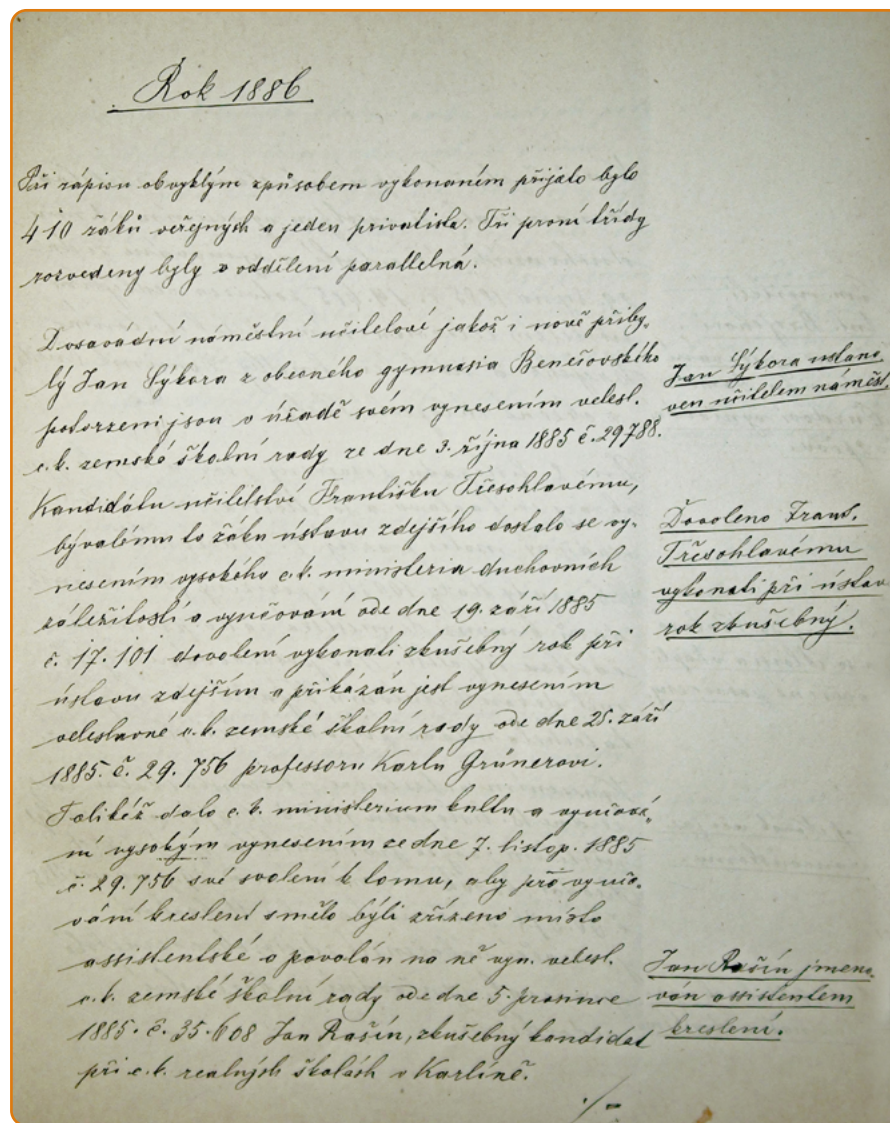 Rok 1886
Při zápisu obvyklým způsobem vykonaném přijato bylo
410 žáků veřejných a jeden privatista. Tři první třídy
rozvedeny byly v oddělení parallelná.
Dosavádní náměstní učitelové jakož i nově přiby-
lý Jan Sýkora z obecného gymnasia Benešovského
potvrzeni jsou v úřadě svém vynesením velesl.
c.k. zemské školní rady ze dne 3. října 1885 č. 29788.
Jan Sýkora ustano
ven učitelem náměst.
Kandidátu učitelství Františku Třesohlavému,
bývalému to žáku ústavu zdejšího dostalo se vy-
nesením vysokého c.k. ministeria duchovních
záležitostí a vyučování ode dne 19. září 1885
č. 17.101 dovolení vykonati zkušebný rok při
ústavu zdejším a přikázán jest vynesením
veleslavné c.k. zemské školní rady ode dne 25. září
1885. č. 29.756 professoru Karlu Grünerovi.
Dovoleno Frant.
Třesohlavému
vykonati při ústav
rok zkušebný.
Tolikéž dalo c.k. ministerium kultu a vyučová-
ní vysokým vynesením ze dne 7. listop. 1885
č. 29.756 své svolení k tomu, aby pro vyučo-
vání kreslení smělo býti zřízeno místo
assistentské a povolán na ně vyn. velesl.
c.k. zemské školní rady ode dne 5. prosince
1885. č. 35.608 Jan Rašín, zkušebný kandidat
při c.k. realných školách v Karlíně.
Jan Rašín jmeno-
ván assistentem
kreslení.
./-